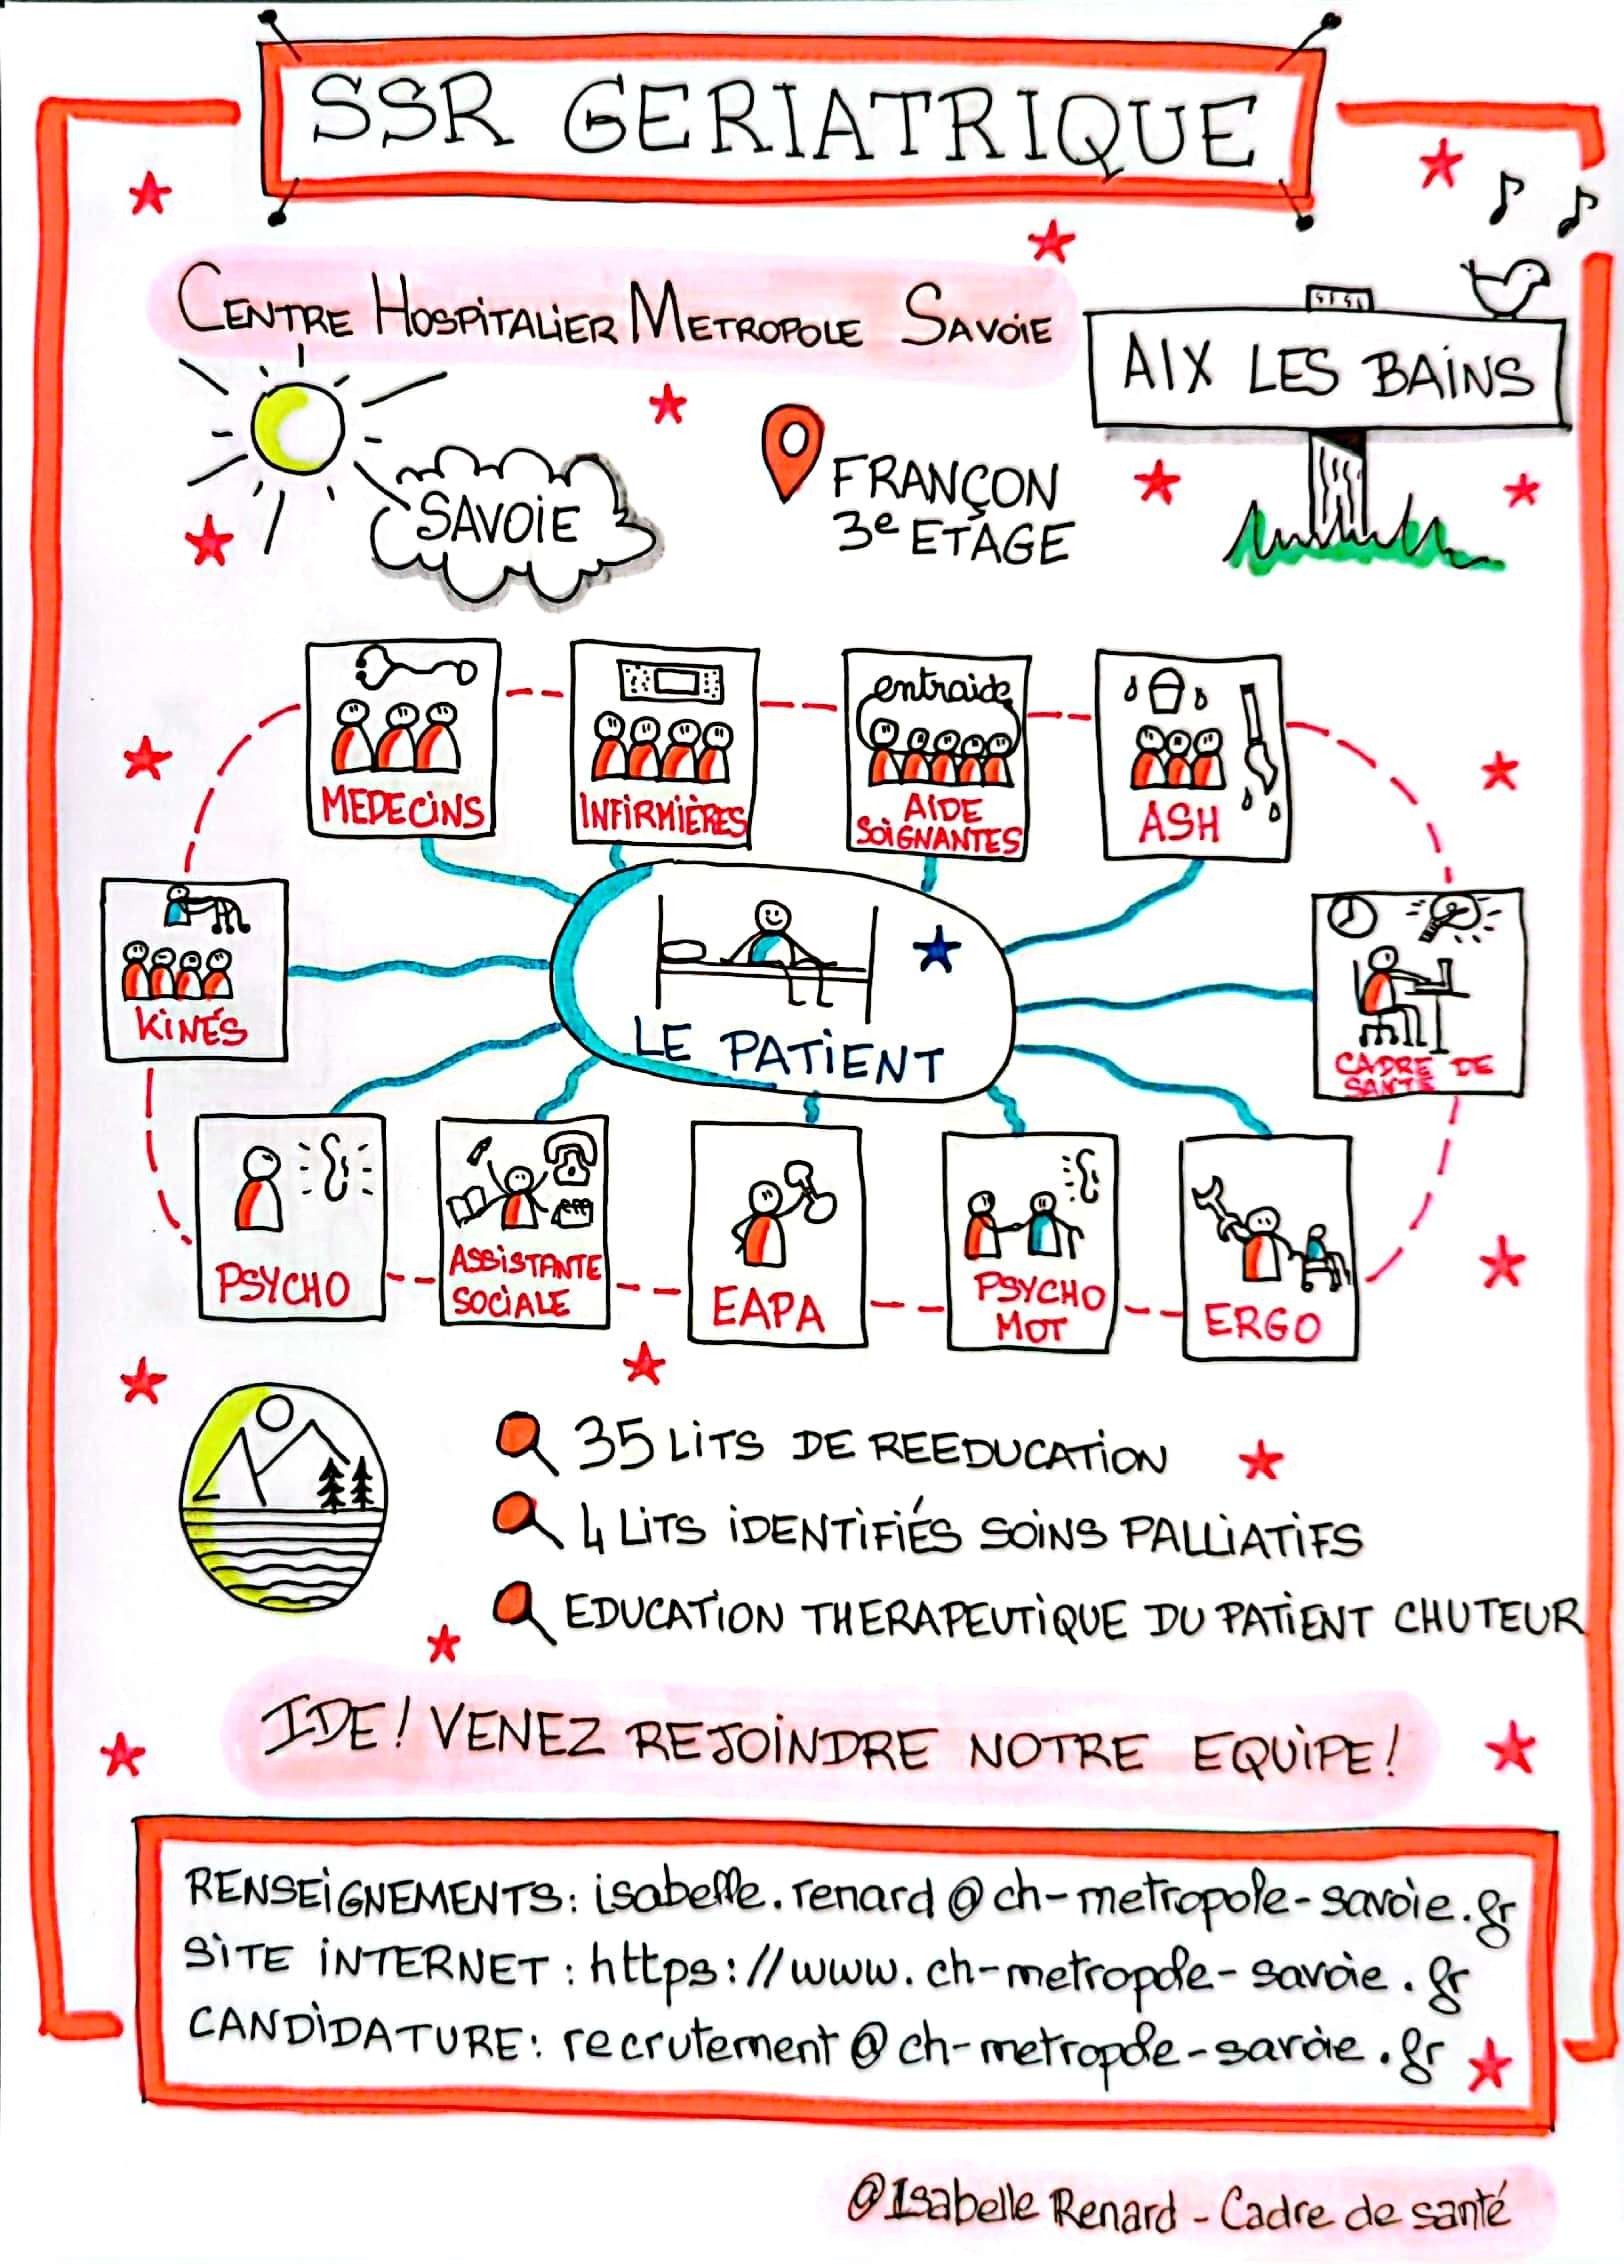 SSR GERIATRIQUE
CENTRE HOSPITALIER METROPOLE SAVOIE
AIX LES BAINS
SAVOIE
FRANÇON
3e ETAGE
MEDECINS
INFIRMIÈRES
entraide
AIDE
SOIGNANTES
ASH
KINÉS
LE PATIENT
CADRE DE
SANTÉ
PSYCHO
ASSISTANTE
SOCIALE
EAPA
PSYCHO
MOT
ERGO
35 LITS DE REEDUCATION
4 LITS IDENTIFIÉS SOINS PALLIATIFS
EDUCATION THERAPEUTIQUE DU PATIENT CHUTEUR
IDE! VENEZ REJOINDRE NOTRE EQUIPE!
RENSEIGNEMENTS: isabelle.renard@ch-metropole-savoie.fr
SITE INTERNET: https://www.ch-metropole-savoie.fr
CANDIDATURE: recrutement@ch-metropole-savoie.fr
@Isabelle Renard - Cadre de santé